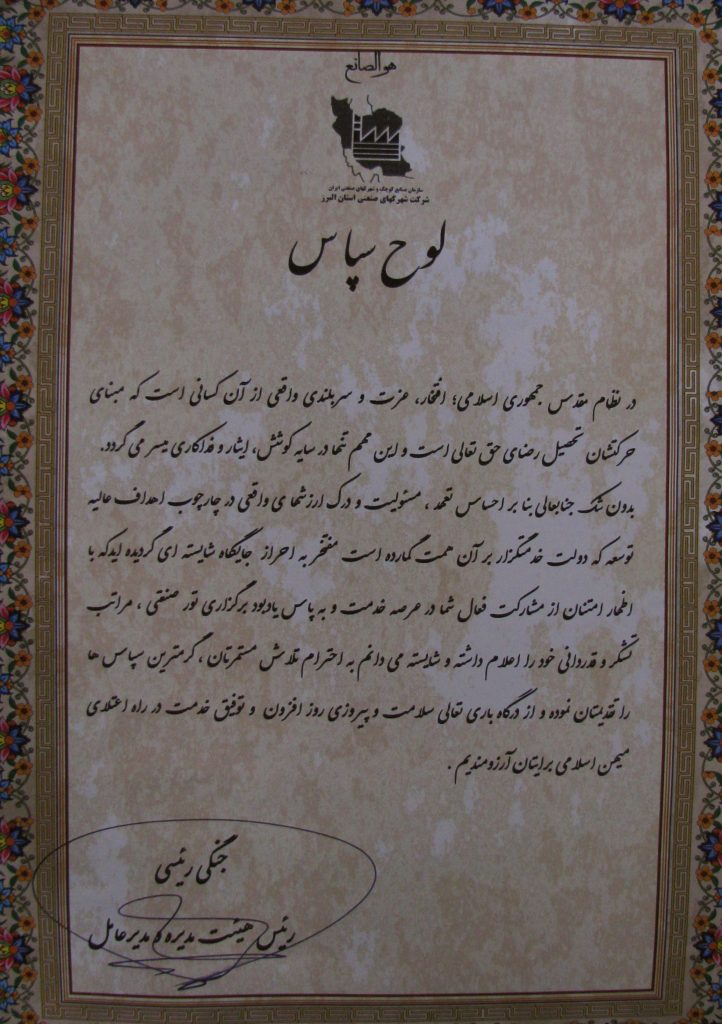 هوالصانع
سازمان صنایع کوچک و شهرکهای صنعتی ایران
شرکت شهرکهای صنعتی استان البرز
لوح سپاس
در نظام مقدس جمهوری اسلامی؛ افتخار، عزت و سربلندی واقعی از آن کسانی است که مبنای
حرکتشان تحصیل رضای حق تعالی است و این مهم تنها در سایه کوشش، ایثار و فداکاری میسر می گردد.
بدون شک جنابعالی بنا بر احساس تعهد ، مسئولیت و درک ارزشهای واقعی در چارچوب اهداف عالیه
توسعه که دولت خدمتگزار بر آن همت گمارده است مفتخر به احراز جایگاه شایسته ای گردیده اید که با
اظهار امتنان از مشارکت فعال شما در عرصه خدمت و به پاس یادبود برگزاری تور صنعتی ، مراتب
تشکر و قدردانی خود را اعلام داشته و شایسته می دانم به احترام تلاش مستمرتان ، گرمترین سپاس ها
را تقدیمتان نموده و از درگاه باری تعالی سلامت و پیروزی روز افزون و توفیق خدمت در راه اعتلای
میهن اسلامی برایتان آرزومندیم .
جنگی رئیسی
رئیس هیئت مدیره و مدیرعامل